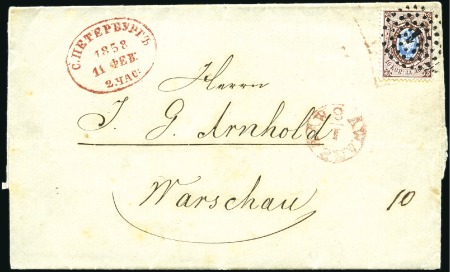 С.ПЕТЕРБУРГЪ
1858
11 ФЕВ.
2.ЧАС.
Herrn
J. G. Arnhold
Warschau
10